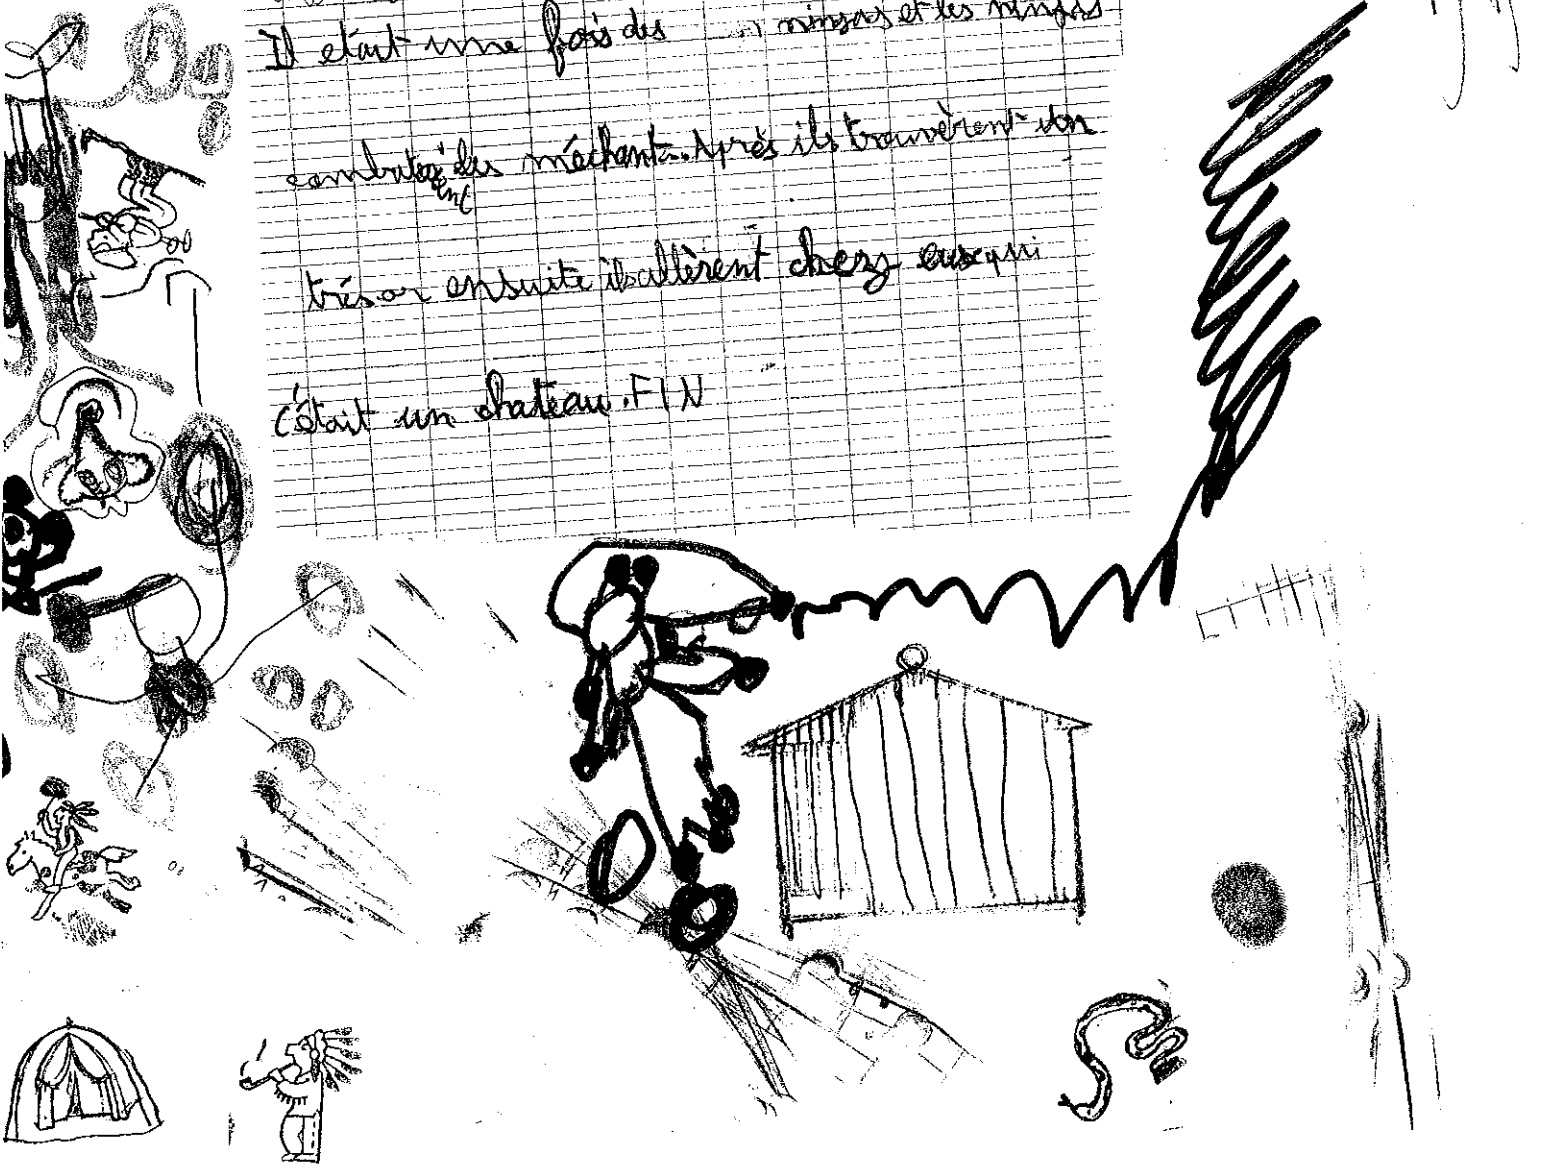 Il etait une fois des ninjas et les ninjas
combatèrent des méchants. Après ils trouvèrent un
trésor ensuite ils allèrent chez eux qui
c'était un chateau. FIN